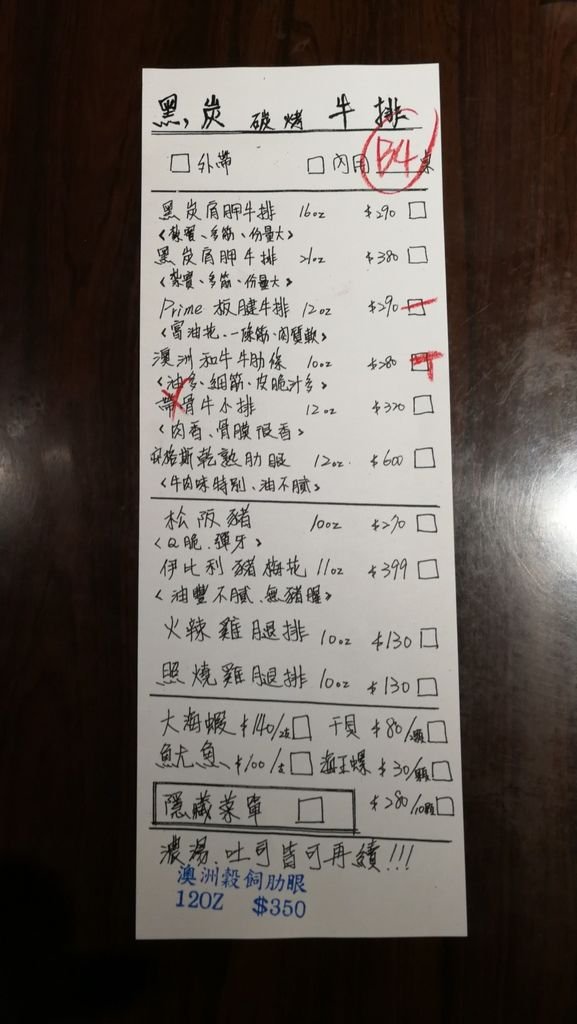 黑炭 碳烤 牛排
□外帶 □內用 B4 桌
黑炭肩胛牛排 16oz $290 □
<紮實、多筋、份量大>
黑炭肩胛牛排 21oz $380 □
<紮實、多筋、份量大>
Prime 板腱牛排 12oz $290 □
<富油花、一條筋、肉質軟>
澳洲和牛牛肋條 10oz $280 □
<油多、細筋、皮脆汁多>
帶骨牛小排 12oz $320 □
<肉香、骨膜很香>
安格斯乾熟肋眼 12oz $600 □
<牛肉味特別、油不膩>
松阪豬 10oz $270 □
<Q脆、彈牙>
伊比利豬梅花 11oz $399 □
<油豐不膩、無豬腥>
火辣雞腿排 10oz $130 □
照燒雞腿排 10oz $130 □
大海蝦 $140/2隻 □ 干貝 $80/2顆 □
魷魚 $100/支 □ 海玉螺 $30/顆 □
隱藏菜單 □ $280/10顆 □
濃湯、吐司皆可再續!!!
澳洲穀飼肋眼
12OZ $350